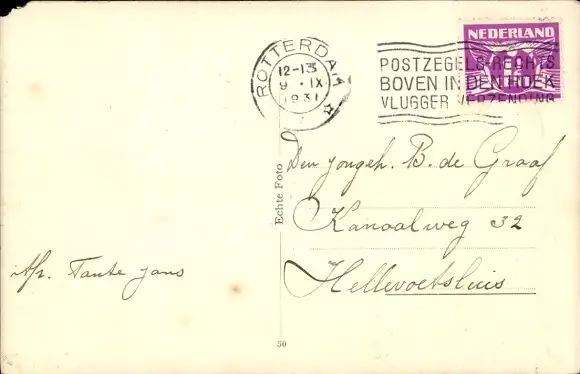 NEDERLAND
ROTTERDAM
12-13
9 · IX
1931
POSTZEGELS RECHTS
BOVEN IN DEN HOEK
VLUGGER VERZENDING
Den jongeh. B. de Graaf
Kanaalweg 32
Hellevoetsluis
Echte Foto
Afz. Tante Jans
50